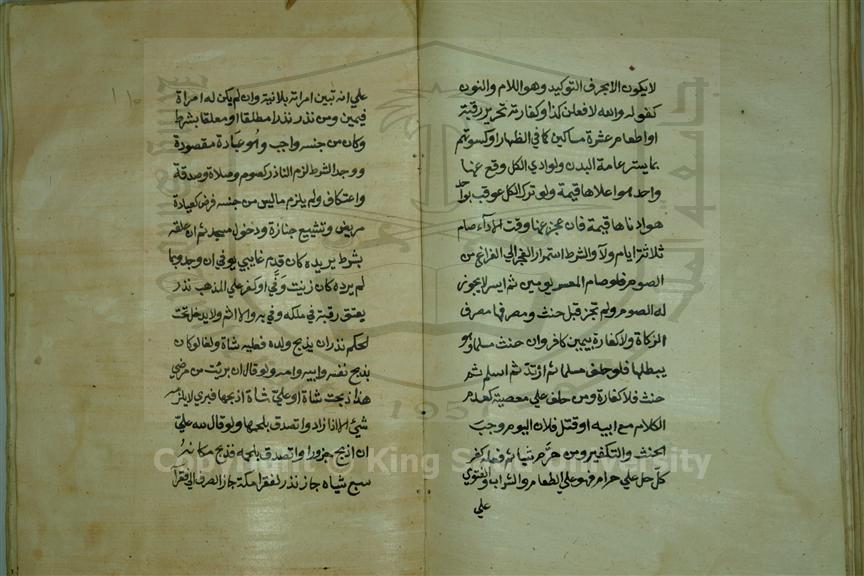 لا يكون الا بحرف التوكيد وهو اللام والنون
كقوله والله لافعلن كذا وكفارته تحرير رقبة
او اطعام عشرة مساكين كما في الظهار او كسوتهم
بما يستر عامة البدن ولو ادي الكل وقع عنها
واحد هو اعلاها قيمة ولو ترك الكل عوقب بواحد
هو ادناها قيمة فان عجز عنها وقت الاداء صام
ثلاثة ايام ولاء والشرط استمرار العجز الي الفراغ من
الصوم فلو صام المعسر يومين ثم ايسر لا يجوز
له الصوم ولم تجز قبل حنث ومصرفها مصرف
الزكاة ولا كفارة بيمين كافر وان حنث مسلما وهو
يبطلها فلو حلف مسلما ثم ارتد ثم اسلم ثم
حنث فلا كفارة ومن حلف علي معصية كعدم
الكلام مع ابيه او قتل فلان اليوم وجب
الحنث والتكفير ومن حرم شيا ثم فعله كفر
كل حل علي حرام فهو علي الطعام والشراب والفتوي
علي
علي انه تبين امراته بلا نية وان لم يكن له امراة
فيمين ومن نذر نذرا مطلقا او معلقا بشرط
وكان من جنسه واجب وهو عبادة مقصودة
ووجد الشرط لزم الناذر كصوم وصلاة وصدقة
واعتكاف ولم يلزم ما ليس من جنسه فرض كعيادة
مريض وتشييع جنازة ودخول مسجد ثم ان علقه
بشرط يريده كان قدم غايبي يوفي ان وجد وبما
لم يرده كان زنيت وفي او كفر علي المذهب نذر
بعتق رقبة في ملكه وفي به والا اثم ولا يدخل تحت
الحكم نذر ان يذبح ولده فعليه شاة ولغا لو كان
بذبح نفسه وابيه وامه ولو قال ان برئت من مرضي
هذا ذبحت شاة او علي شاة اذبحها فبري لا يلزمه
شيئ الا اذا زاد واتصدق بلحمها ولو قال لله علي
ان اذبح جزورا واتصدق بلحمه فذبح مكانه
سبع شياه جاز نذر لفقرا مكة جاز الصرف الي فقرا
Copyright © King Saud University
1957